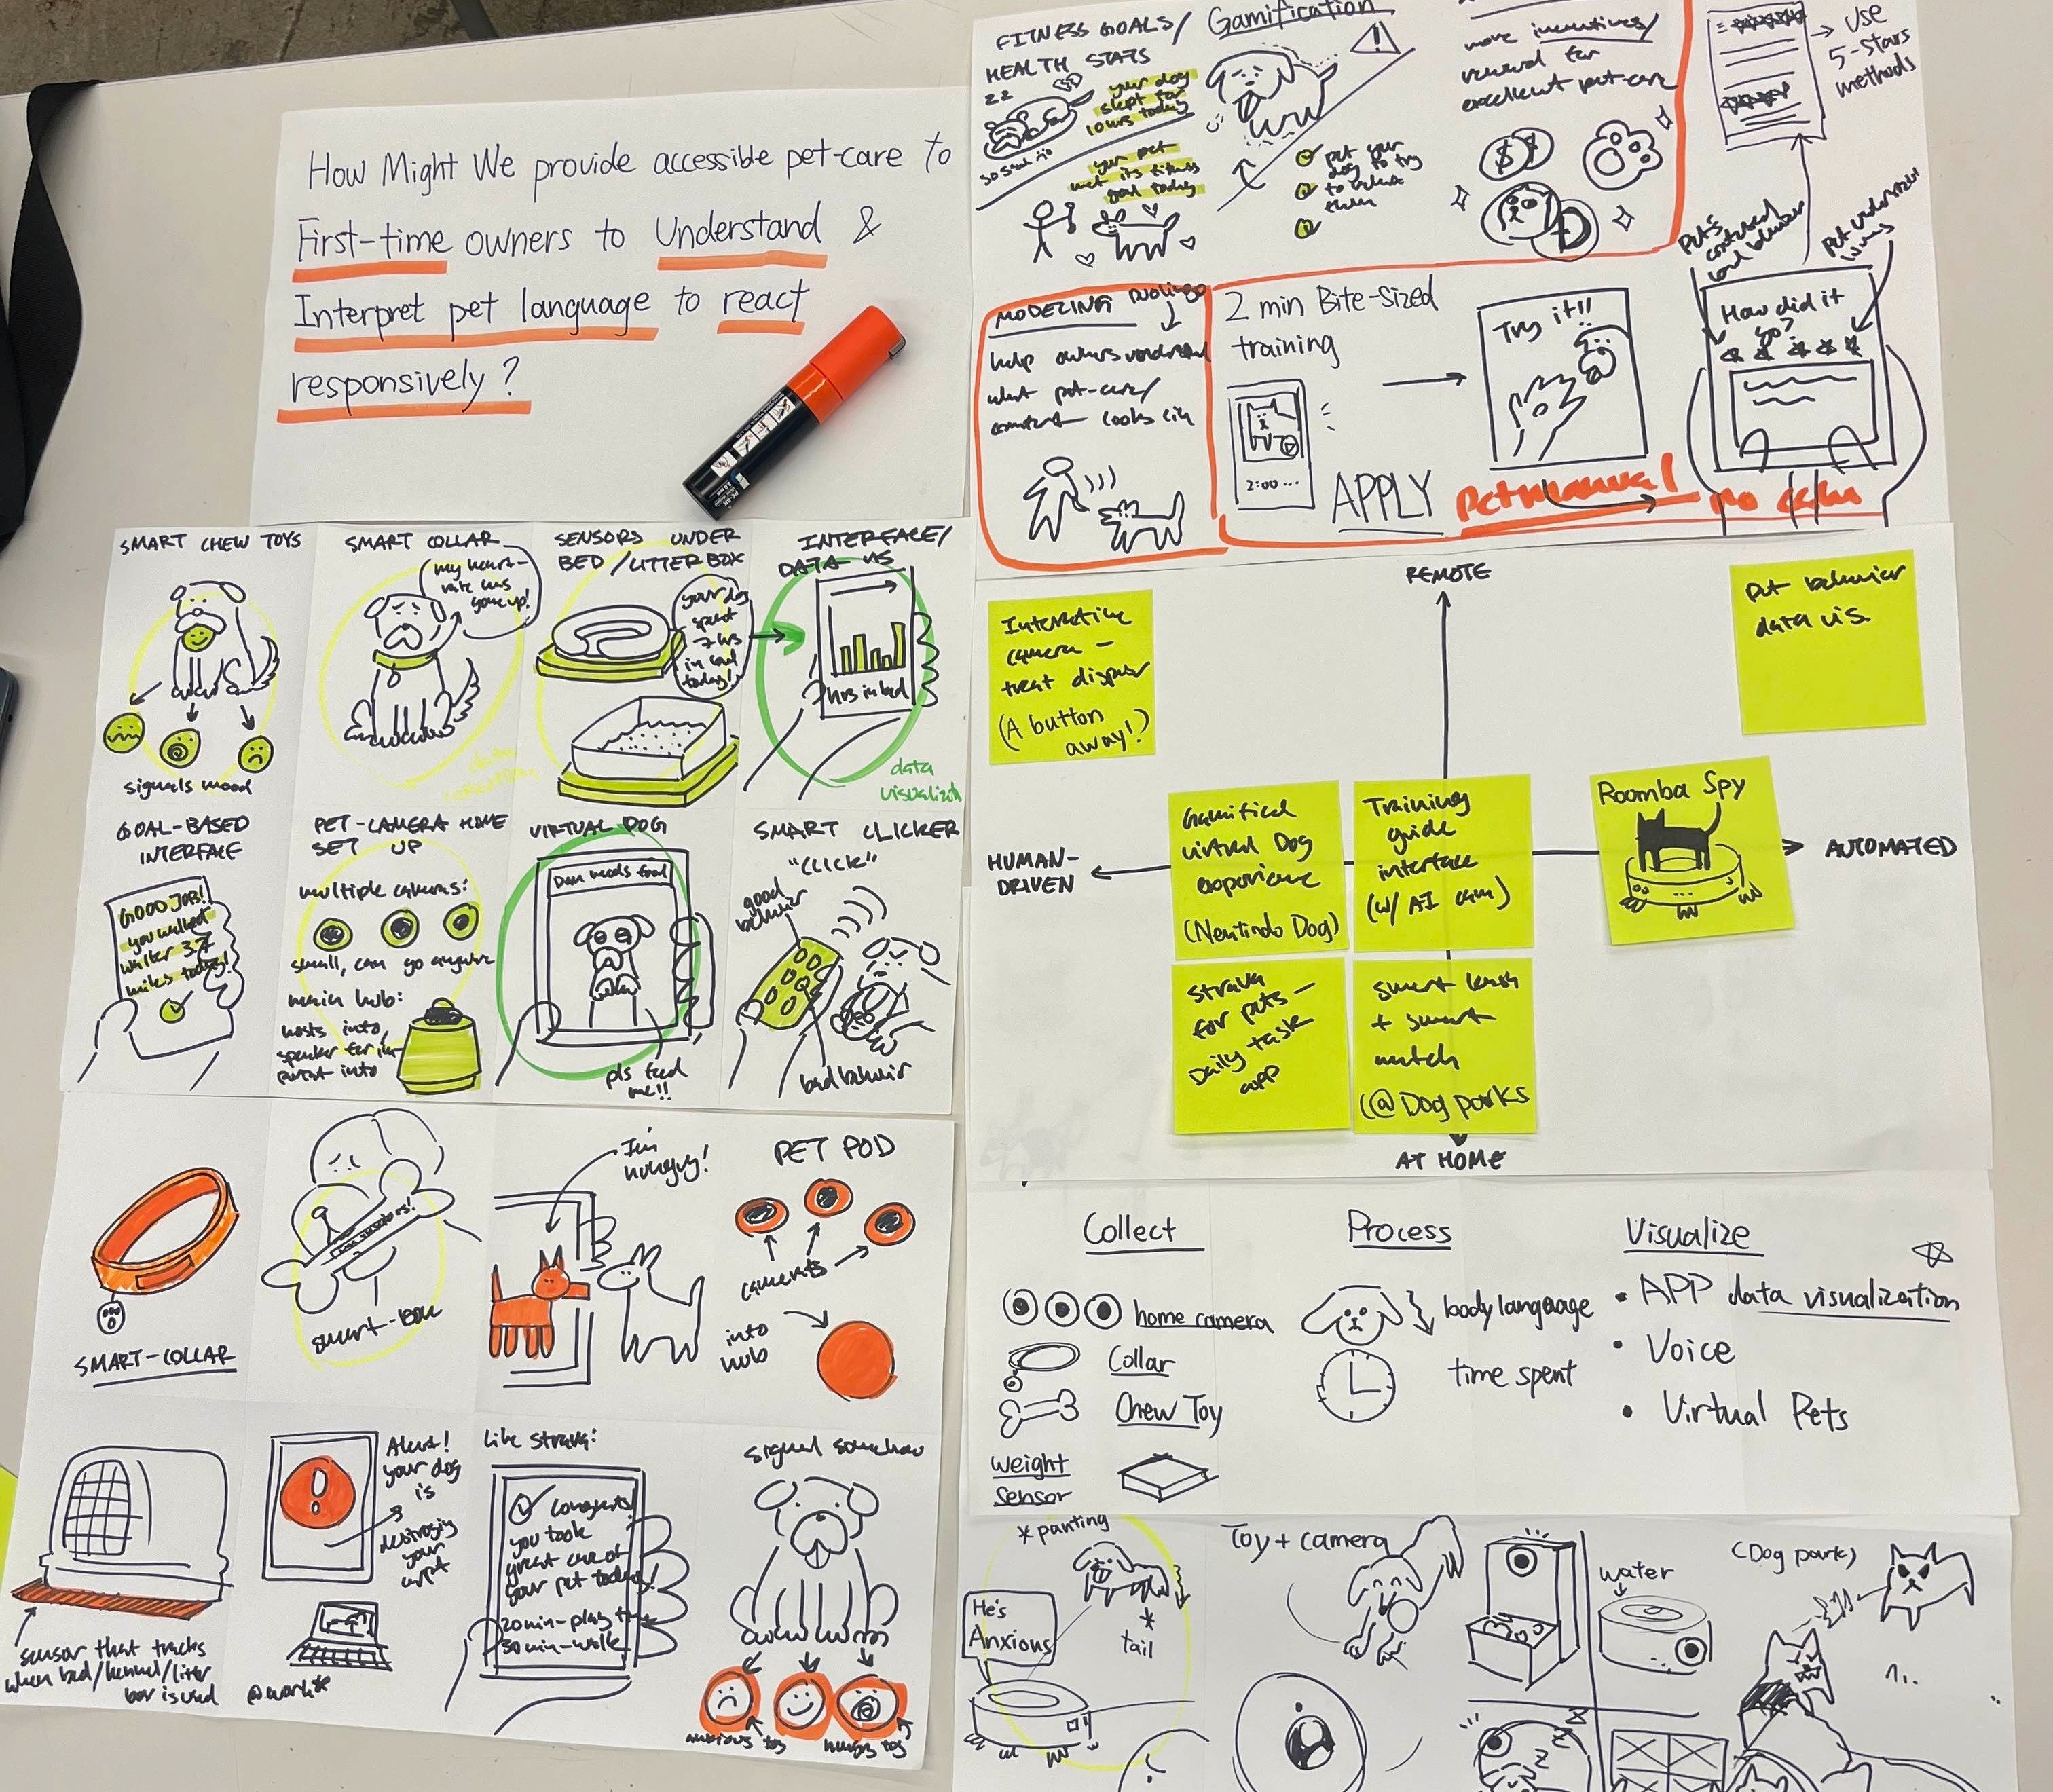 How Might We provide accessible pet-care to
First-time owners to Understand &
Interpret pet language to react
responsively?
FITNESS GOALS/
HEALTH STATS
Gamification
your dog
slept for
10 hrs today
your pet
met its fitness
goal today
pet your
dog to try
to relax
them
more incentives/
reward for
excellent pet-care
→ Use
5-Stars
methods
MODELING
Duolingo
help owners understand
what pet-care/
looks like
2 min Bite-sized
training
2:00 ...
APPLY
Try it!!
How did it
go?
Pet manual
SMART CHEW TOYS
signals mood
SMART COLLAR
my heart-
rate has
gone up!
SENSORS UNDER
BED / LITTERBOX
your dog
spent
7 hrs
in bed
today!
INTERFACE/
DATA VIS
7hrs in bed
data
visualizatn
GOAL-BASED
INTERFACE
GOOD JOB!
you walked
walter 3.7
miles today!
PET-CAMERA HOME
SET UP
multiple cameras:
small, can go anywhere
main hub:
hosts info,
speaker for im-
portant info
VIRTUAL DOG
Dan needs food
pls feed
me!!
SMART CLICKER
"CLICK"
good
behavior
bad behavior
REMOTE
HUMAN-
DRIVEN
AUTOMATED
AT HOME
Interactive
camera —
treat dispensr
(A button
away!)
Pet behavior
data vis.
Gamified
virtual Dog
experience
(Nentindo Dog)
Training
guide
interface
(w/ AI cam)
Roomba Spy
Strava
for pets —
Daily task
app
smart leash
+ smart
watch
(@ Dog parks
SMART-COLLAR
smart-bone
I'm
hungry!
PET POD
cameras
info
hub
sensor that tracks
when bed/kennel/litter
box is used
Alert!
your dog
is
destroying
your
carpet
@work
Like strava:
Congrats!
you took
great care of
your pet today!
20min-play time
30min-walk
signal somehow
anxious tog
hungry tog
Collect
home camera
Collar
Chew Toy
weight
sensor
Process
body language
time spent
Visualize
• APP data visualization
• Voice
• Virtual Pets
* panting
He's
Anxious
*
tail
Toy + camera
water
(Dog park)
z
z
z